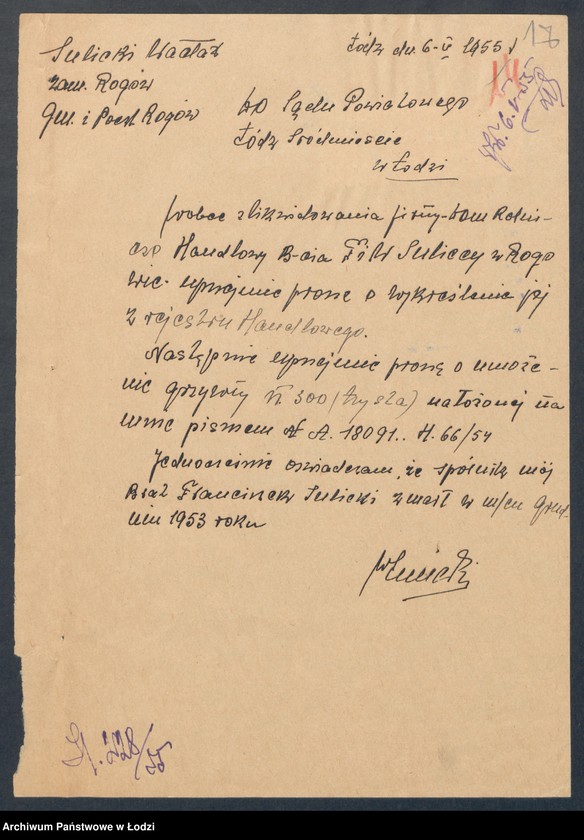 Sulicki Wacław
zam. Rogów
gm. i Poczt. Rogów
Łódź dn. 6-V 1955 r
17
Do Sądu Powiatowego
Łódź Śródmieście
w Łodzi
Wobec zlikwidowania firmy-Dom Rolni-
czo Handlowy B-cia F i W Suliccy w Rogo
wie. uprzejmie proszę o wykreślenie jej
z rejestru Handlowego.
Następnie uprzejmie proszę o umoże-
nie grzywny zł 300 (trzysta) nałożonej na
mnie pismem № A. 18091.. H. 66/54
Jednocześnie oświadczam, że spólnik mój
Brat Franciszek Sulicki zmarł w m/cu Grud-
niu 1953 roku
WSulicki
228/55
Archiwum Państwowe w Łodzi